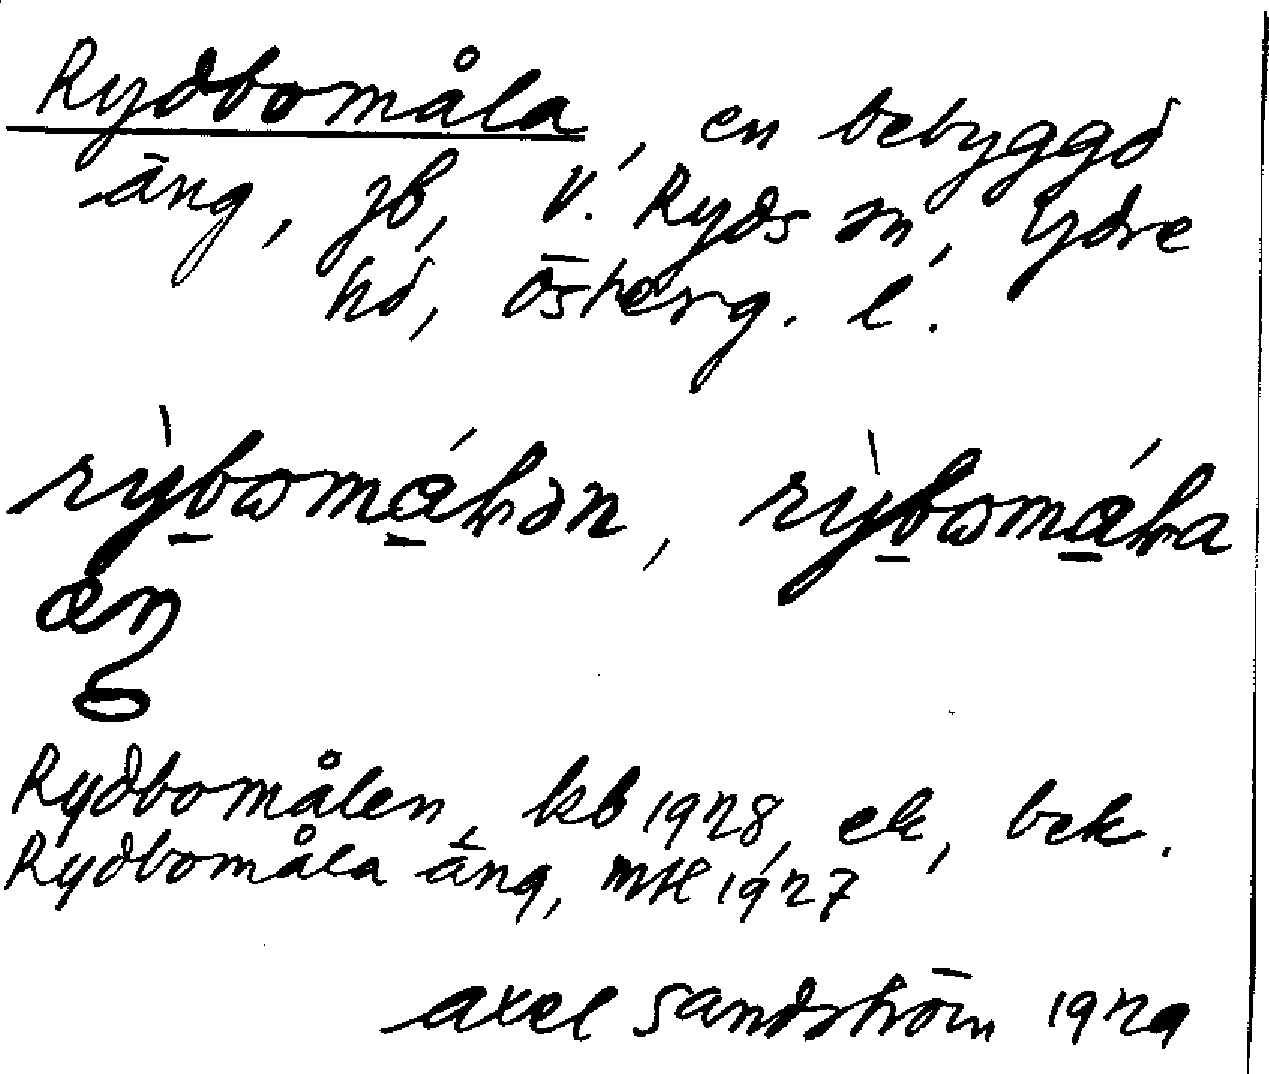 Rydbomåla, en bebyggd
äng, jb, V. Ryds sn, Ydre
hd, Österg. l.
Rydbomålen, kb 1928, ek, bek.
Rydbomåla äng, mtl 1927
Axel Sandström 1929